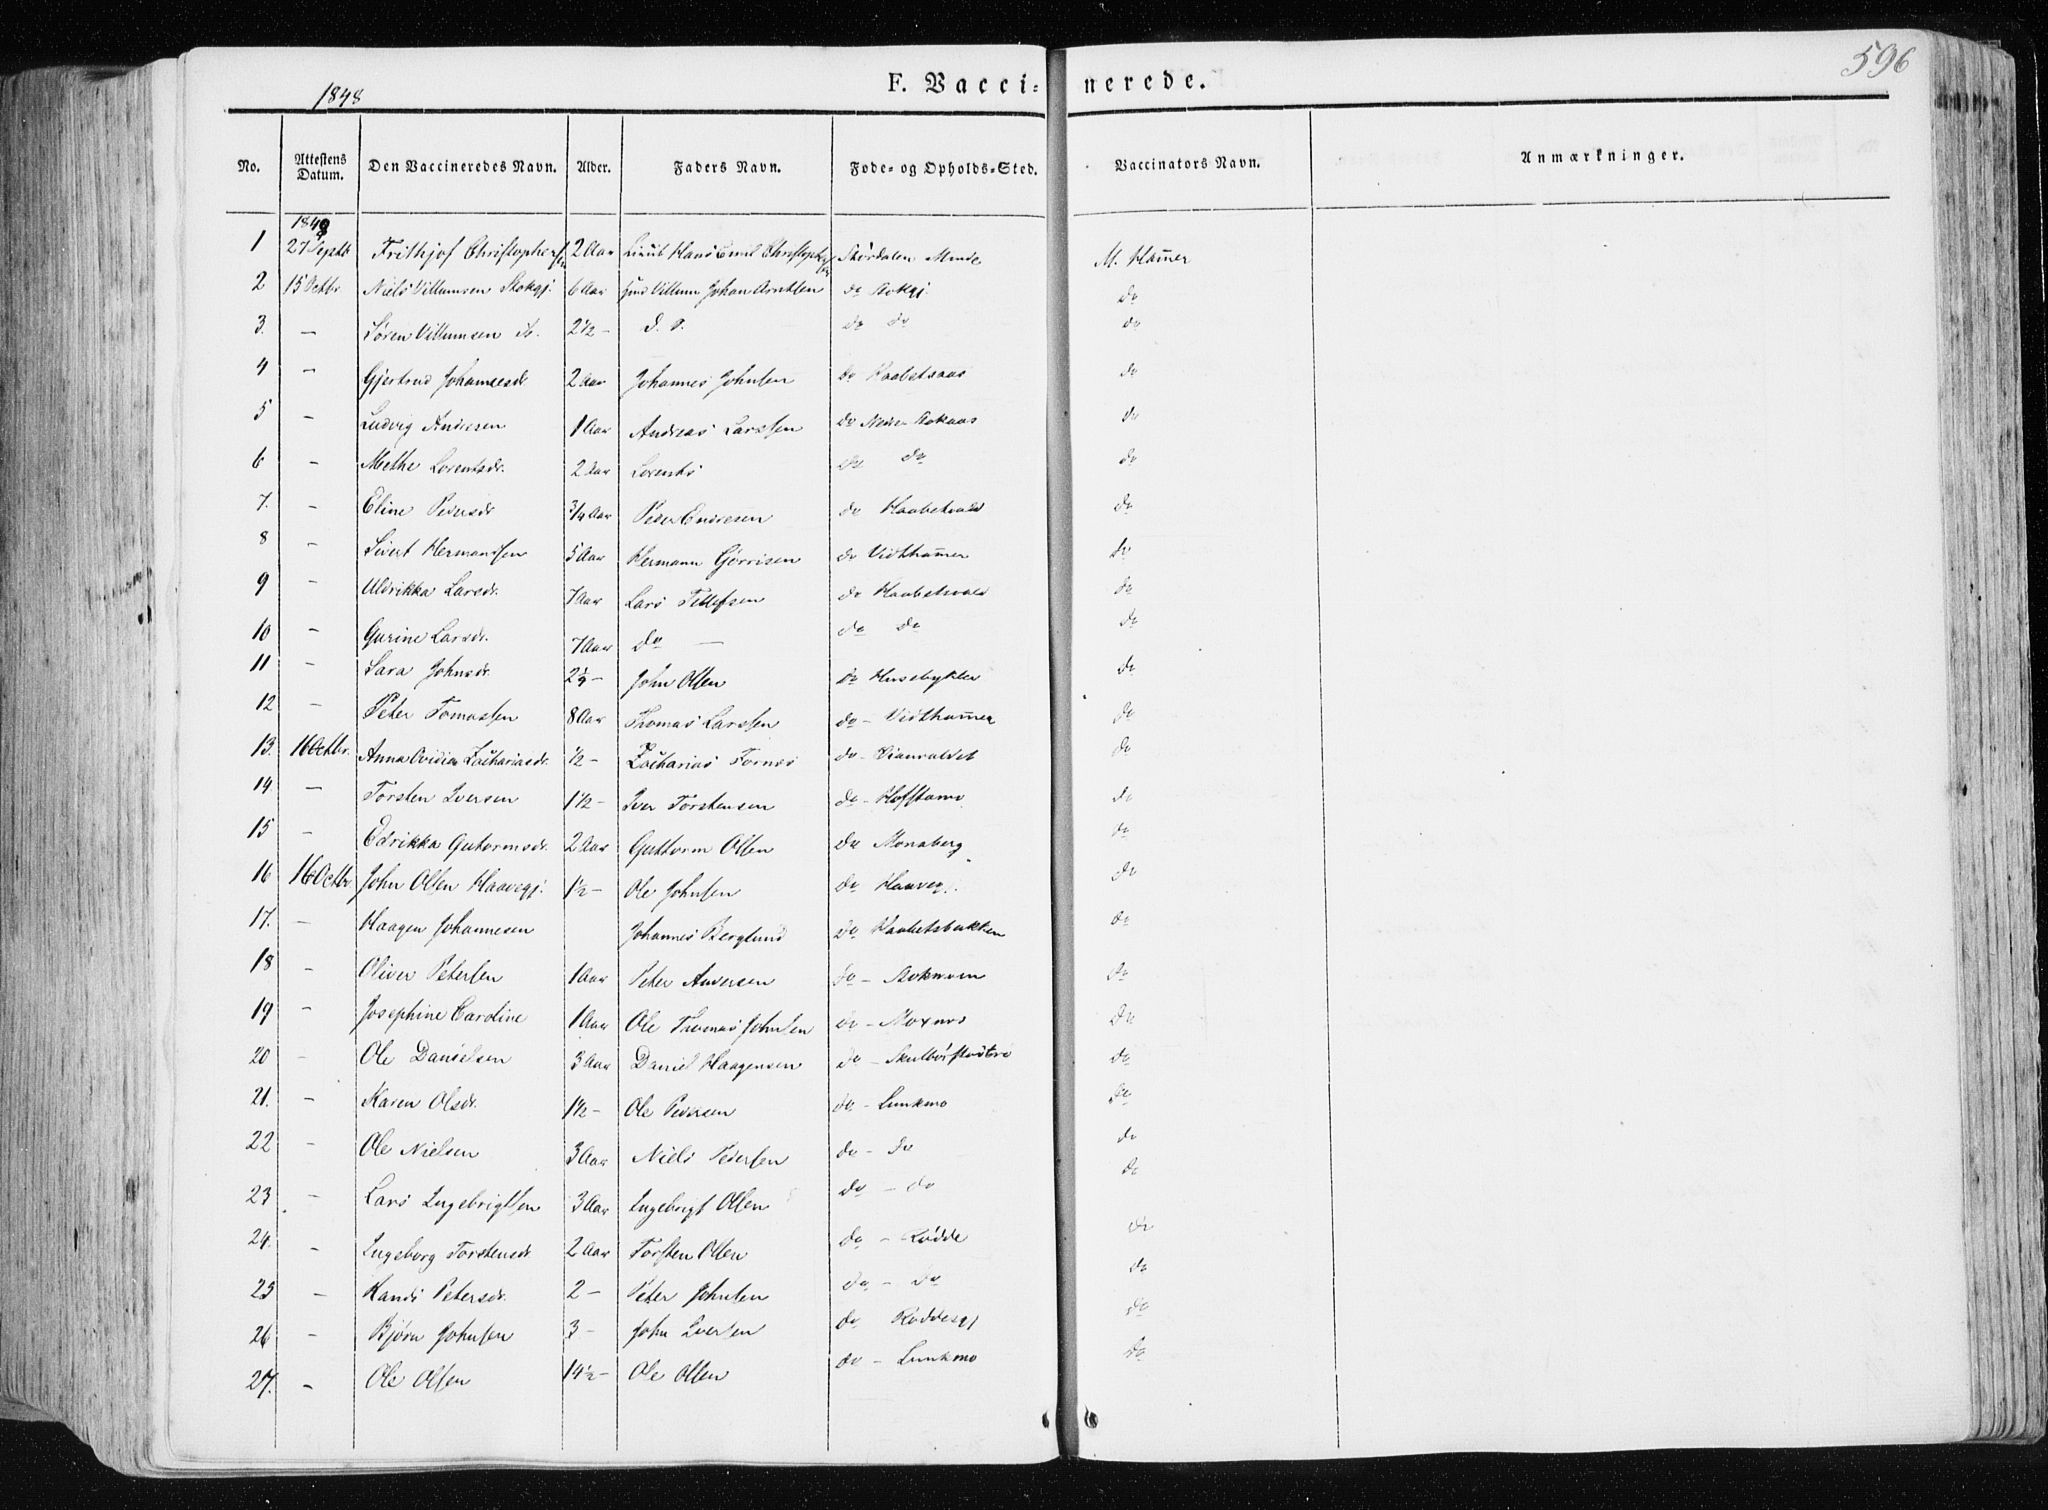 596
1848
F. Vaccinerede.
No. Attestens Datum. Den Vaccineredes Navn. Alder. Faders Navn. Føde- og Opholds-Sted. Vaccinators Navn. Anmærkninger.
1848
1 27 Septbr Frithjof Christophersen 2 Aar Hans Emil Christophersen Størdalen Minde M. Ham̄er
2 15 Octbr Niels Villumsen Stokgj. 6 Aar Villum Johan Arntsen do Stokgj. do
3. — Søren Villumsen St. 2 1/2 — d. o. do do do
4 — Gjertrud Johannesdr 2 Aar Johannes Johnsen do Haabetsaas do
5 — Ludvig Andresen 1 Aar Andreas Larssen do Stokaas do
6 — Methe Lorentsdr. 2 Aar Lorents do do do
7. — Eline Pedersdr 3/4 Aar Peder Endresen do do
8 — Sivert Hermansen 5 Aar Hermann Gjørrisen do Vidtham̄er do
9 — Uldrikka Larsdr. 7 Aar Lars Tellefsen do do
10 — Gurine Larsdr. 7 Aar do — do do do
11 — Sara Johnsdr. 2 1/2 — John Olsen do Husebykler do
12 — Peter Tomassen 8 Aar Thomas Larssen do — Vidtham̄er do
13. 16 Octbr. Anna Ovidia Zachariasdr. 1/2 — Zacharias Fornes do — do
14 — Torsten Iversen 1 1/2 — Iver Torstensen do — Hofstamo do
15 — Edrikka Gutormsdr. 2 Aar Guttorm Olsen do Monaberg do
16 16 Octbr John Olsen Haavegj. 1 1/2 — Ole Johnsen do Haavegj. do
17. — Haagen Johannesen Johannes Berglund do Haabetsbakken do
18 — Oliver Petersen 1 Aar Peter Andersen do — Stokmoen do
19 — Josephine Caroline 1 Aar Ole Thomas Johnsen do — Moxnes do
20 — Ole Danielsen 3 Aar Daniel Haagensen do — do
21. — Karen Olsdr. 1 1/2 — Ole Pedersen do — Lunkmo do
22 — Ole Nielsen 3 Aar Niels Pedersen do — do do
23 — Lars Ingebrigtsen 3 Aar Ingebrigt Olsen do — do do
24. — Ingeborg Torstensdr 2 Aar Torsten Olsen do — Rødde do
25 — Randi Petersdr. 2 — Peter Johnsen do — do do
26 — Bjørn Johnsen 3 — John Iversen do Røddesgj do
27. — Ole Olsen 14 1/2 — Ole Olsen do — Lunkmo do